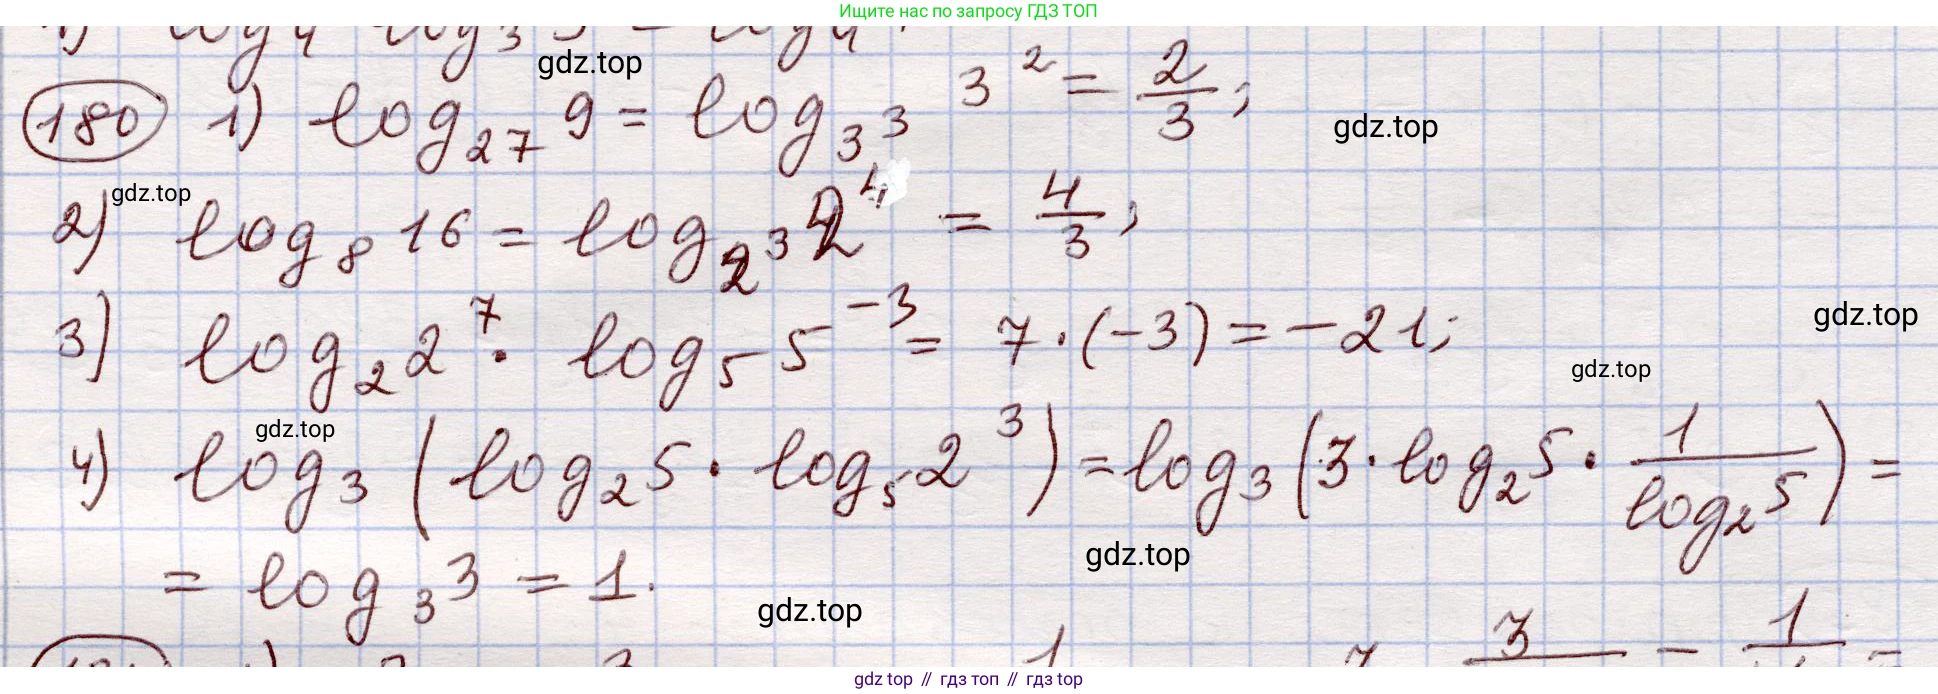 Ищите нас по запросу ГДЗ ТОП
gdz.top
180 1) log₂₇ 9 = log₃³ 3² = 2/3;
gdz.top
gdz.top
2) log₈ 16 = log₂³ 2⁴ = 4/3;
3) log₂ 2⁷ · log₅ 5⁻³ = 7·(-3) = -21;
gdz.top
gdz.top
gdz.top
4) log₃ (log₂ 5 · log₅ 2³) = log₃ (3 · log₂ 5 · 1/log₂ 5) =
gdz.top
= log₃ 3 = 1.
gdz.top
gdz top // гдз топ // gdz top